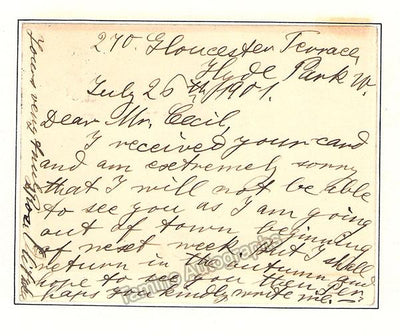 270. Gloucester Terrace,
Hyde Park W.
July 26th/1901.
Dear Mr. Cecil,
I received your card
and am extremely sorry
that I will not be able
to see you as I am going
out of town beginning
of next week but I shall
return in the autumn and
hope to see you then per-
haps you kindly write me.
Yours very truly
Tamino Autographs